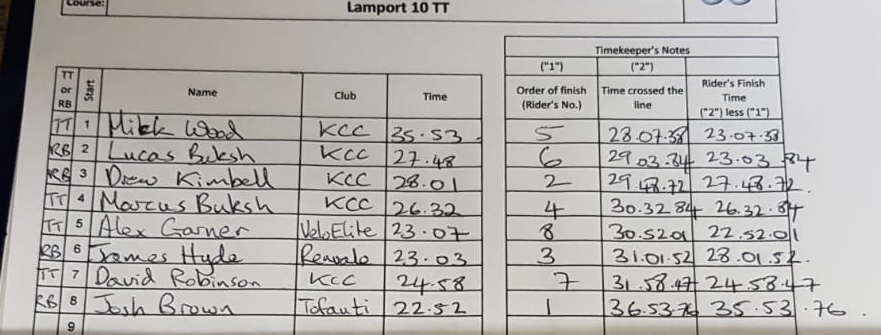 Course: Lamport 10 TT
Timekeeper's Notes
("1") ("2")
TT or RB Start Name Club Time Order of finish (Rider's No.) Time crossed the line Rider's Finish Time ("2") less ("1")
TT 1 Mikk Wood KCC 35.53 5 28.07.38 23.07.38
RB 2 Lucas Buksh KCC 27.48 6 29 03.84 23.03 84
RB 3 Drew Kimbell KCC 28.01 2 29.48.72 27.48.72
TT 4 Marcus Buksh KCC 26.32 4 30.32 84 26.32.84
TT 5 Alex Garner VeloElite 23.07 8 30.52 01 22.52.01
RB 6 James Hyde 23.03 3 31.01.52 28.01.52.
TT 7 David Robinson KCC 24.58 7 31.58.47 24.58.47
RB 8 Josh Brown Tofauti 22.52 1 36.53.76 35.53.76.
9